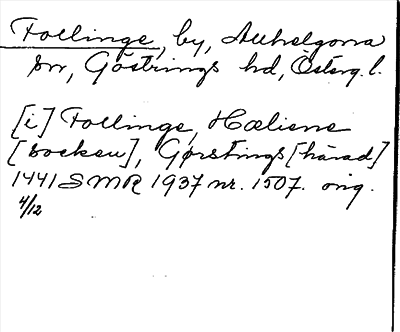 Follinge, by, Allhelgona
sn, Göstrings hd, Österg. l.
[i] Follinge, Hælisne
[socken], Gørstings [härad]
1441 SMR 1937 nr. 1507. orig.
4/12